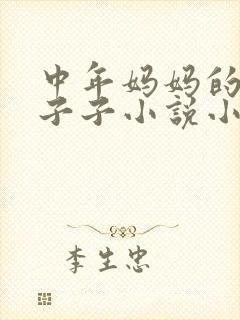 中年妈妈的
子子小说小
李生忠